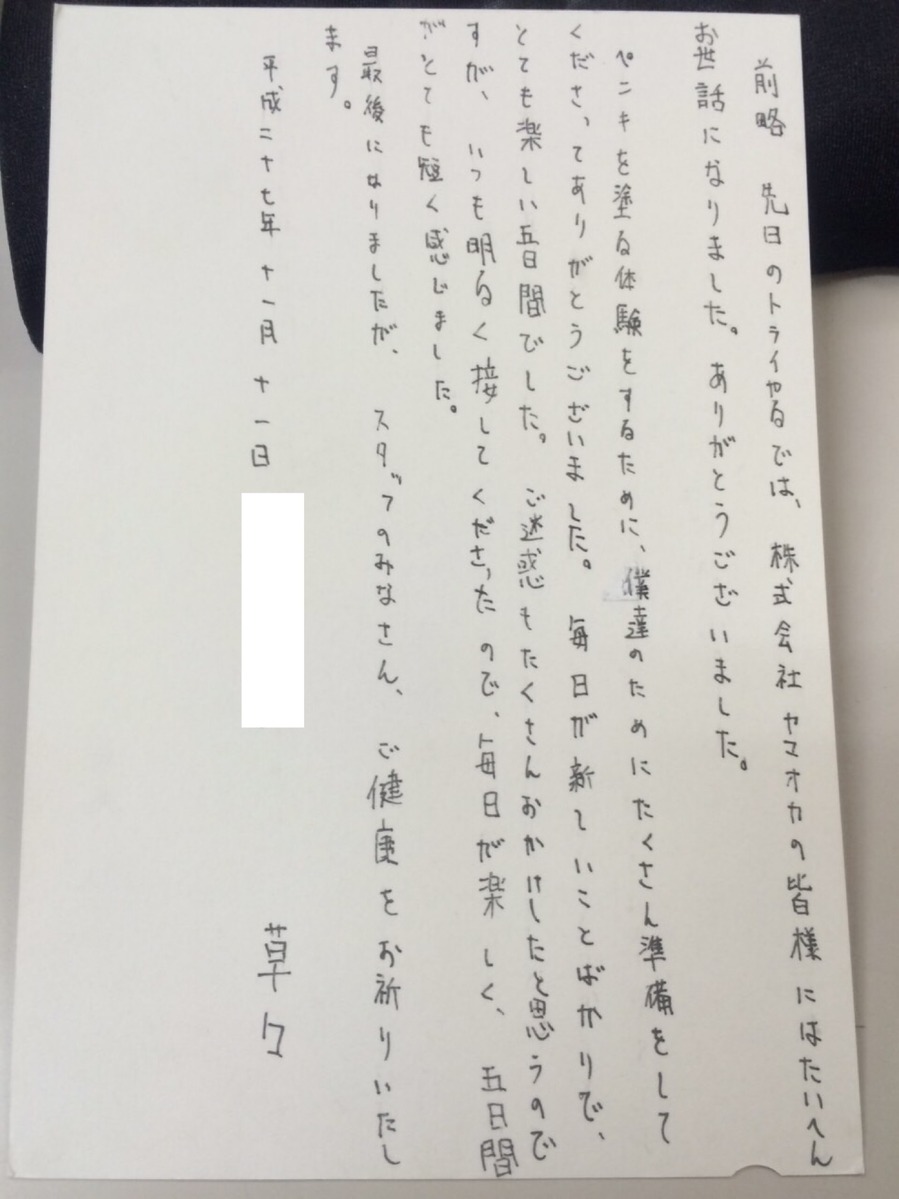 前略　先日のトライやるでは、株式会社ヤマオカの皆様にはたいへん
お世話になりました。ありがとうございました。
ペンキを塗る体験をするために、僕達のためにたくさん準備をして
くださってありがとうございました。毎日が新しいことばかりで、
とても楽しい五日間でした。ご迷惑もたくさんおかけしたと思うので
すが、いつも明るく接してくださったので、毎日が楽しく、五日間
がとても短く感じました。
最後になりましたが、スタッフのみなさん、ご健康をお祈りいたし
ます。
平成二十七年　十一月　十一日
草々